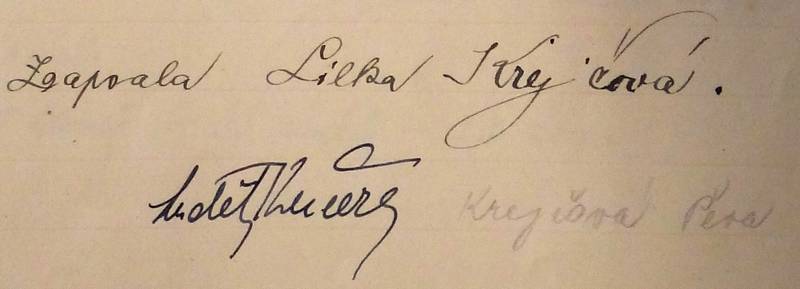 Zapsala Lilka Krejčová.
Krejčová Věra